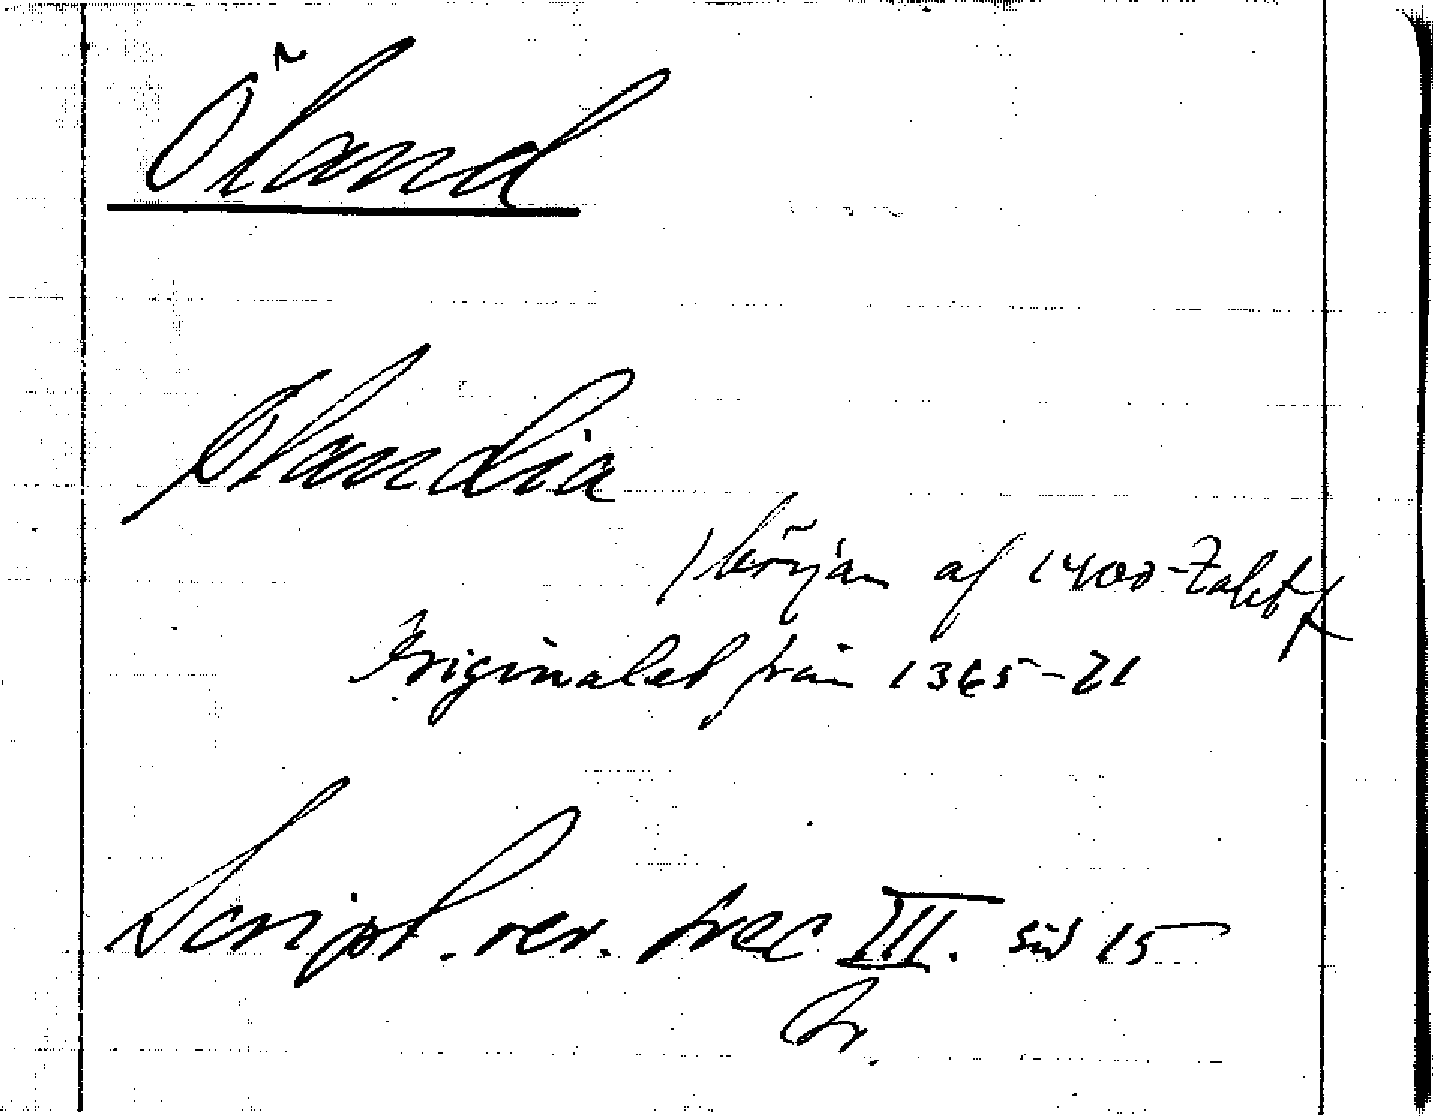 Öland
Ølandia
/ början af 1400-talet /
Originalet från 1365-71
Script. rer. svec III. sid 15
Br.